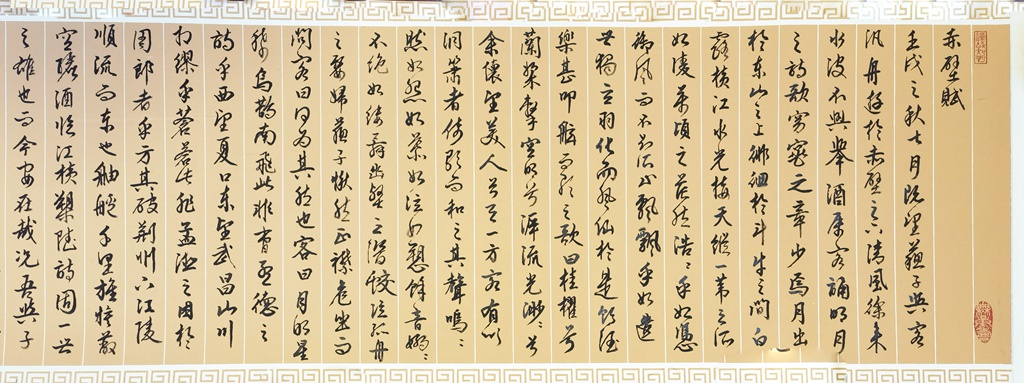 赤壁賦
壬戌之秋七月既望蘇子與客
汎舟遊於赤壁之下清風徐来
水波不興舉酒属客誦明月
之詩歌窈窕之章少焉月出
於東山之上徘徊於斗牛之間白
露横江水光接天縱一葦之所
如凌萬頃之茫然浩〻乎如憑
御風而不知所止飄飄乎如遺
世獨立羽化而登仙於是飲酒
樂甚叩舷而歌之歌曰桂櫂兮
蘭槳擊空明兮泝流光渺〻兮
余懷望美人兮天一方客有吹
洞簫者倚歌而和之其聲嗚〻
然如怨如慕如泣如訴餘音嫋〻
不絶如縷舞幽壑之潛蛟泣孤舟
之嫠婦蘇子愀然正襟危坐而
問客曰何為其然也客曰月明星
稀烏鵲南飛此非曹孟德之
詩乎西望夏口東望武昌山川
相繆乎蒼蒼此非孟德之困於
周郎者乎方其破荆州下江陵
順流而東也舳艫千里旌旗蔽
空釃酒臨江横槊賦詩固一世
之雄也而今安在哉况吾與子